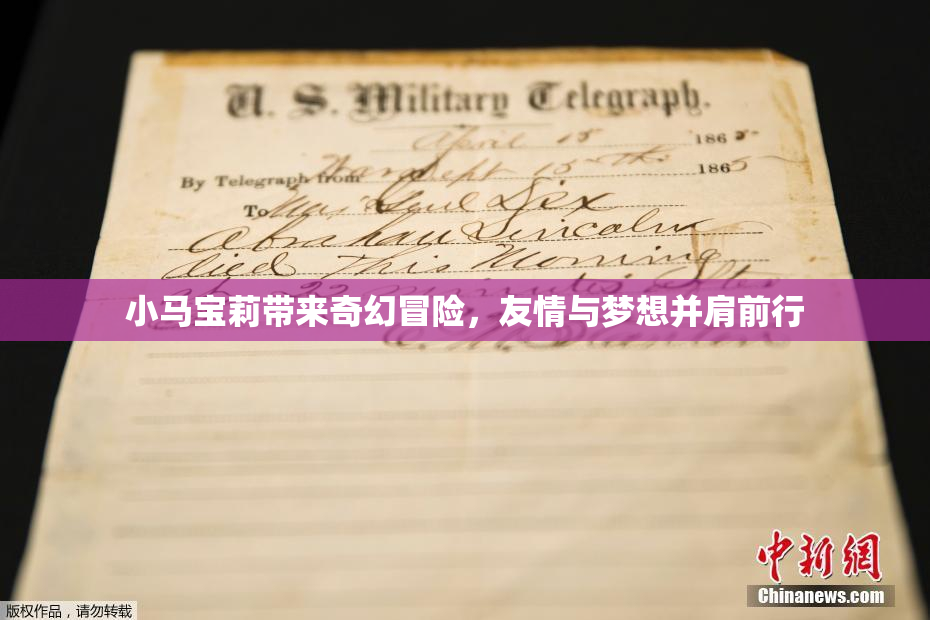 U. S. Military Telegraph.
April 15 1865
By Telegraph from War Dept 15th 1865
To Maj Genl Dix
Abraham Lincoln
died This Morning
at 22 minutes after
小马宝莉带来奇幻冒险，友情与梦想并肩前行
E. M. Stanton
中新网
Chinanews.com
版权作品，请勿转载